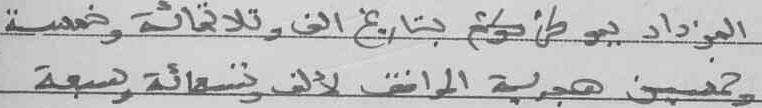 المزداد بمو طن كوكم بتاريخ الف وثلاثمائة وخمسة
وخمسين هجرية الموافق لألف وتسعمائة وسبعة